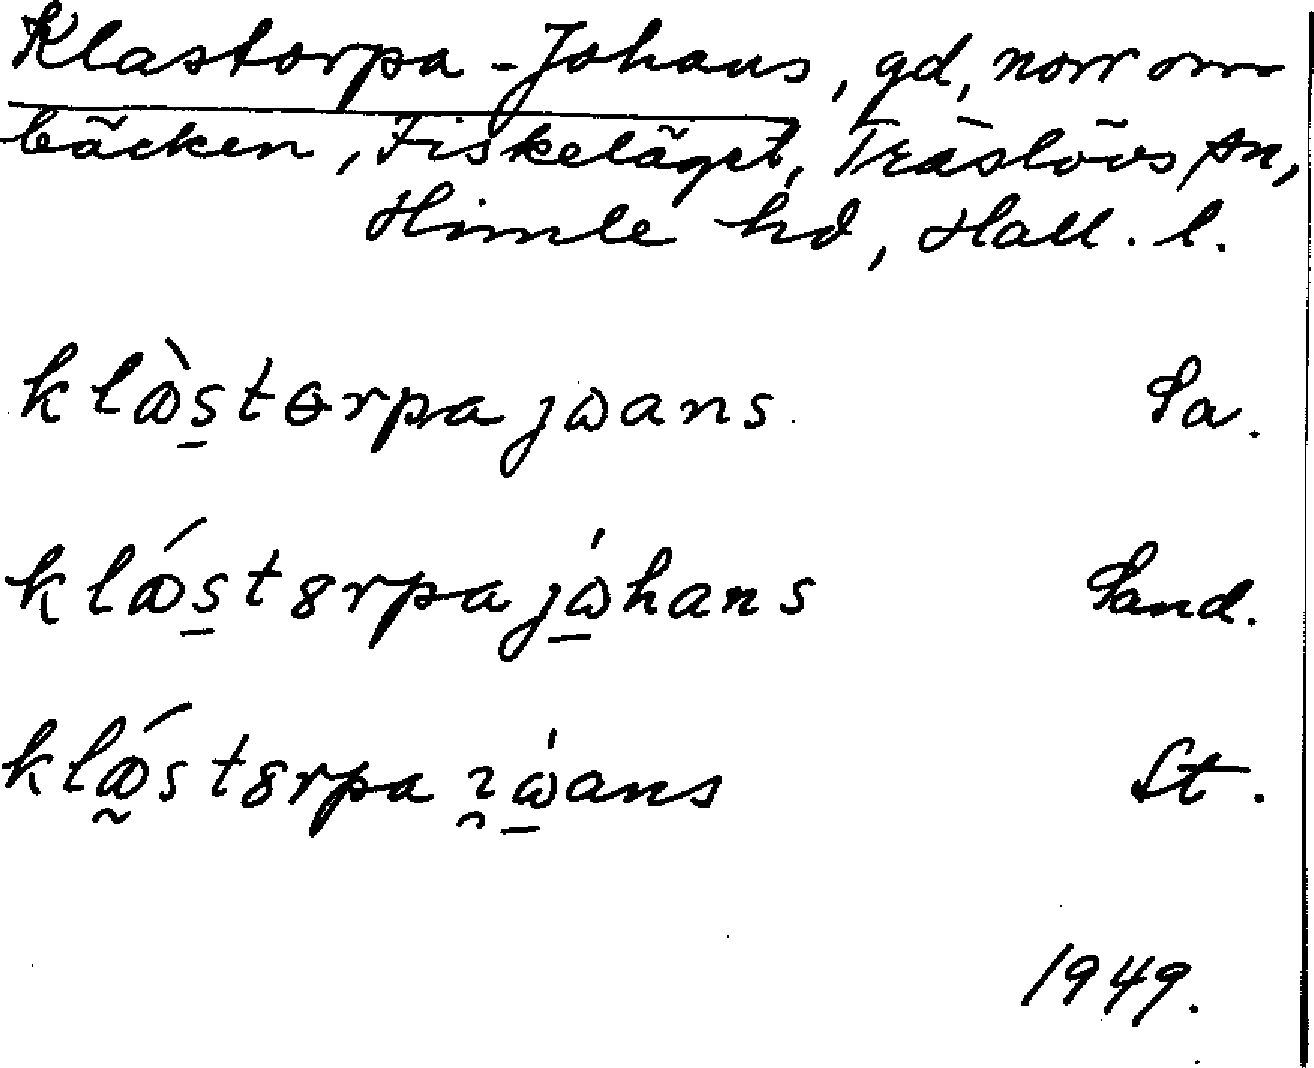 Klastorpa-Johans, gd, norr om
bäcken, Fiskeläget, Träslövs sn,
Himle hd, Hall. l.
klɷ̀s̠tɵrpa jɷans Sa.
klɷ́s̠t8rpa jɷ̠́hans Sand.
klɷ̰́st8rpa ɿ̯ɷ̠́ans St.
1949.